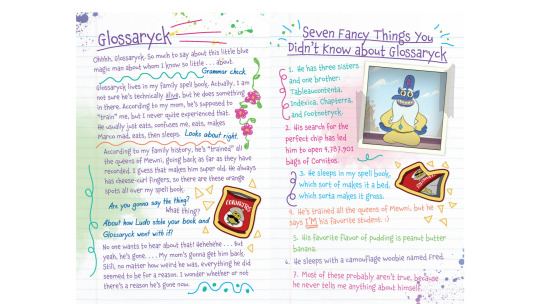 Glossaryck
Ohhhh, Glossaryck. So much to say about this little blue
magic man about whom I know so little . . . about.
Grammar check.
Glossaryck lives in my family spell book. Actually, I am
not sure he's technically alive, but he does something
in there. According to my mom, he's supposed to
"train" me, but I never quite experienced that.
He usually just eats, confuses me, eats, makes
Marco mad, eats, then sleeps. Looks about right.
According to my family history, he's "trained" all
the queens of Mewni, going book as far as they have
recorded. I guess that makes him super old. He always
has cheese-curl fingers, so there are these orange
spots all over my spell book.
Are you gonna say the thing?
What thing?
About how Ludo stole your book and
Glossaryck went with it?
No one wants to hear about that! Hehehehe . . . but
yeah, he's gone. . . . My mom's gonna get him back.
Still, no matter how weird he was, everything he did
seemed to be for a reason. I wonder whether or not
there's a reason he's gone now.
Seven Fancy Things You
Didn't Know about Glossaryck
1. He has three sisters
and one brother:
Tableaucontenta,
Indexica, Chapterra,
and Footnotryck.
2. His search for the
perfect chip has led
him to open 9,787,901
bags of Cornitos.
3. He sleeps in my spell book,
which sort of makes it a bed,
which sorta makes it gross.
4. He's trained all the queens of Mewni, but he
says I'M his favorite student. :)
5. His favorite flavor of pudding is peanut butter
banana.
6. He sleeps with a camouflage woobie named Fred.
7. Most of these probably aren't true, because
he never tells me anything about himself.